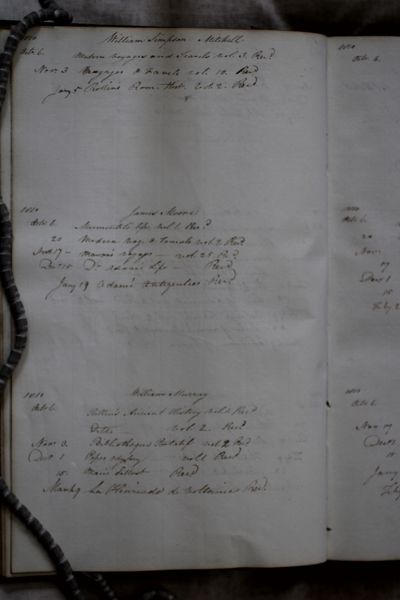 1810 William Simpson Mitchell
Octr 6. Modern Voyages and Travels vol. 3. Recd
Novr 3 Voyages & Travels vol. 10. Recd
Jany 5 Rollins Rom. Hist. vol. 2. Recd
1810 James Moore
Octr 6. vol 1. Recd
20 Modern Voy. & Travels vol. 2 Recd
17 Mavors Voyages vol. 25 Recd
Decr 15 Do Life Recd
Jany 19 Adams Antiquities Recd
1810 William Murray
Octr 6. Rollins Ancient History vol. 1. Recd
Ditto vol. 2. Recd
Novr 3. Bibliotheque vol. 2 Recd
Decr 1 vol. 1 Recd
15. Mairs Sallust Recd
La Henriade de Voltaire Recd
1810
Octr 6.
1810
Octr 6.
20
Novr
17
Decr 1
15
Feby 2
1810
Octr 6.
Novr 17
Decr 1
15
Jany
Feby